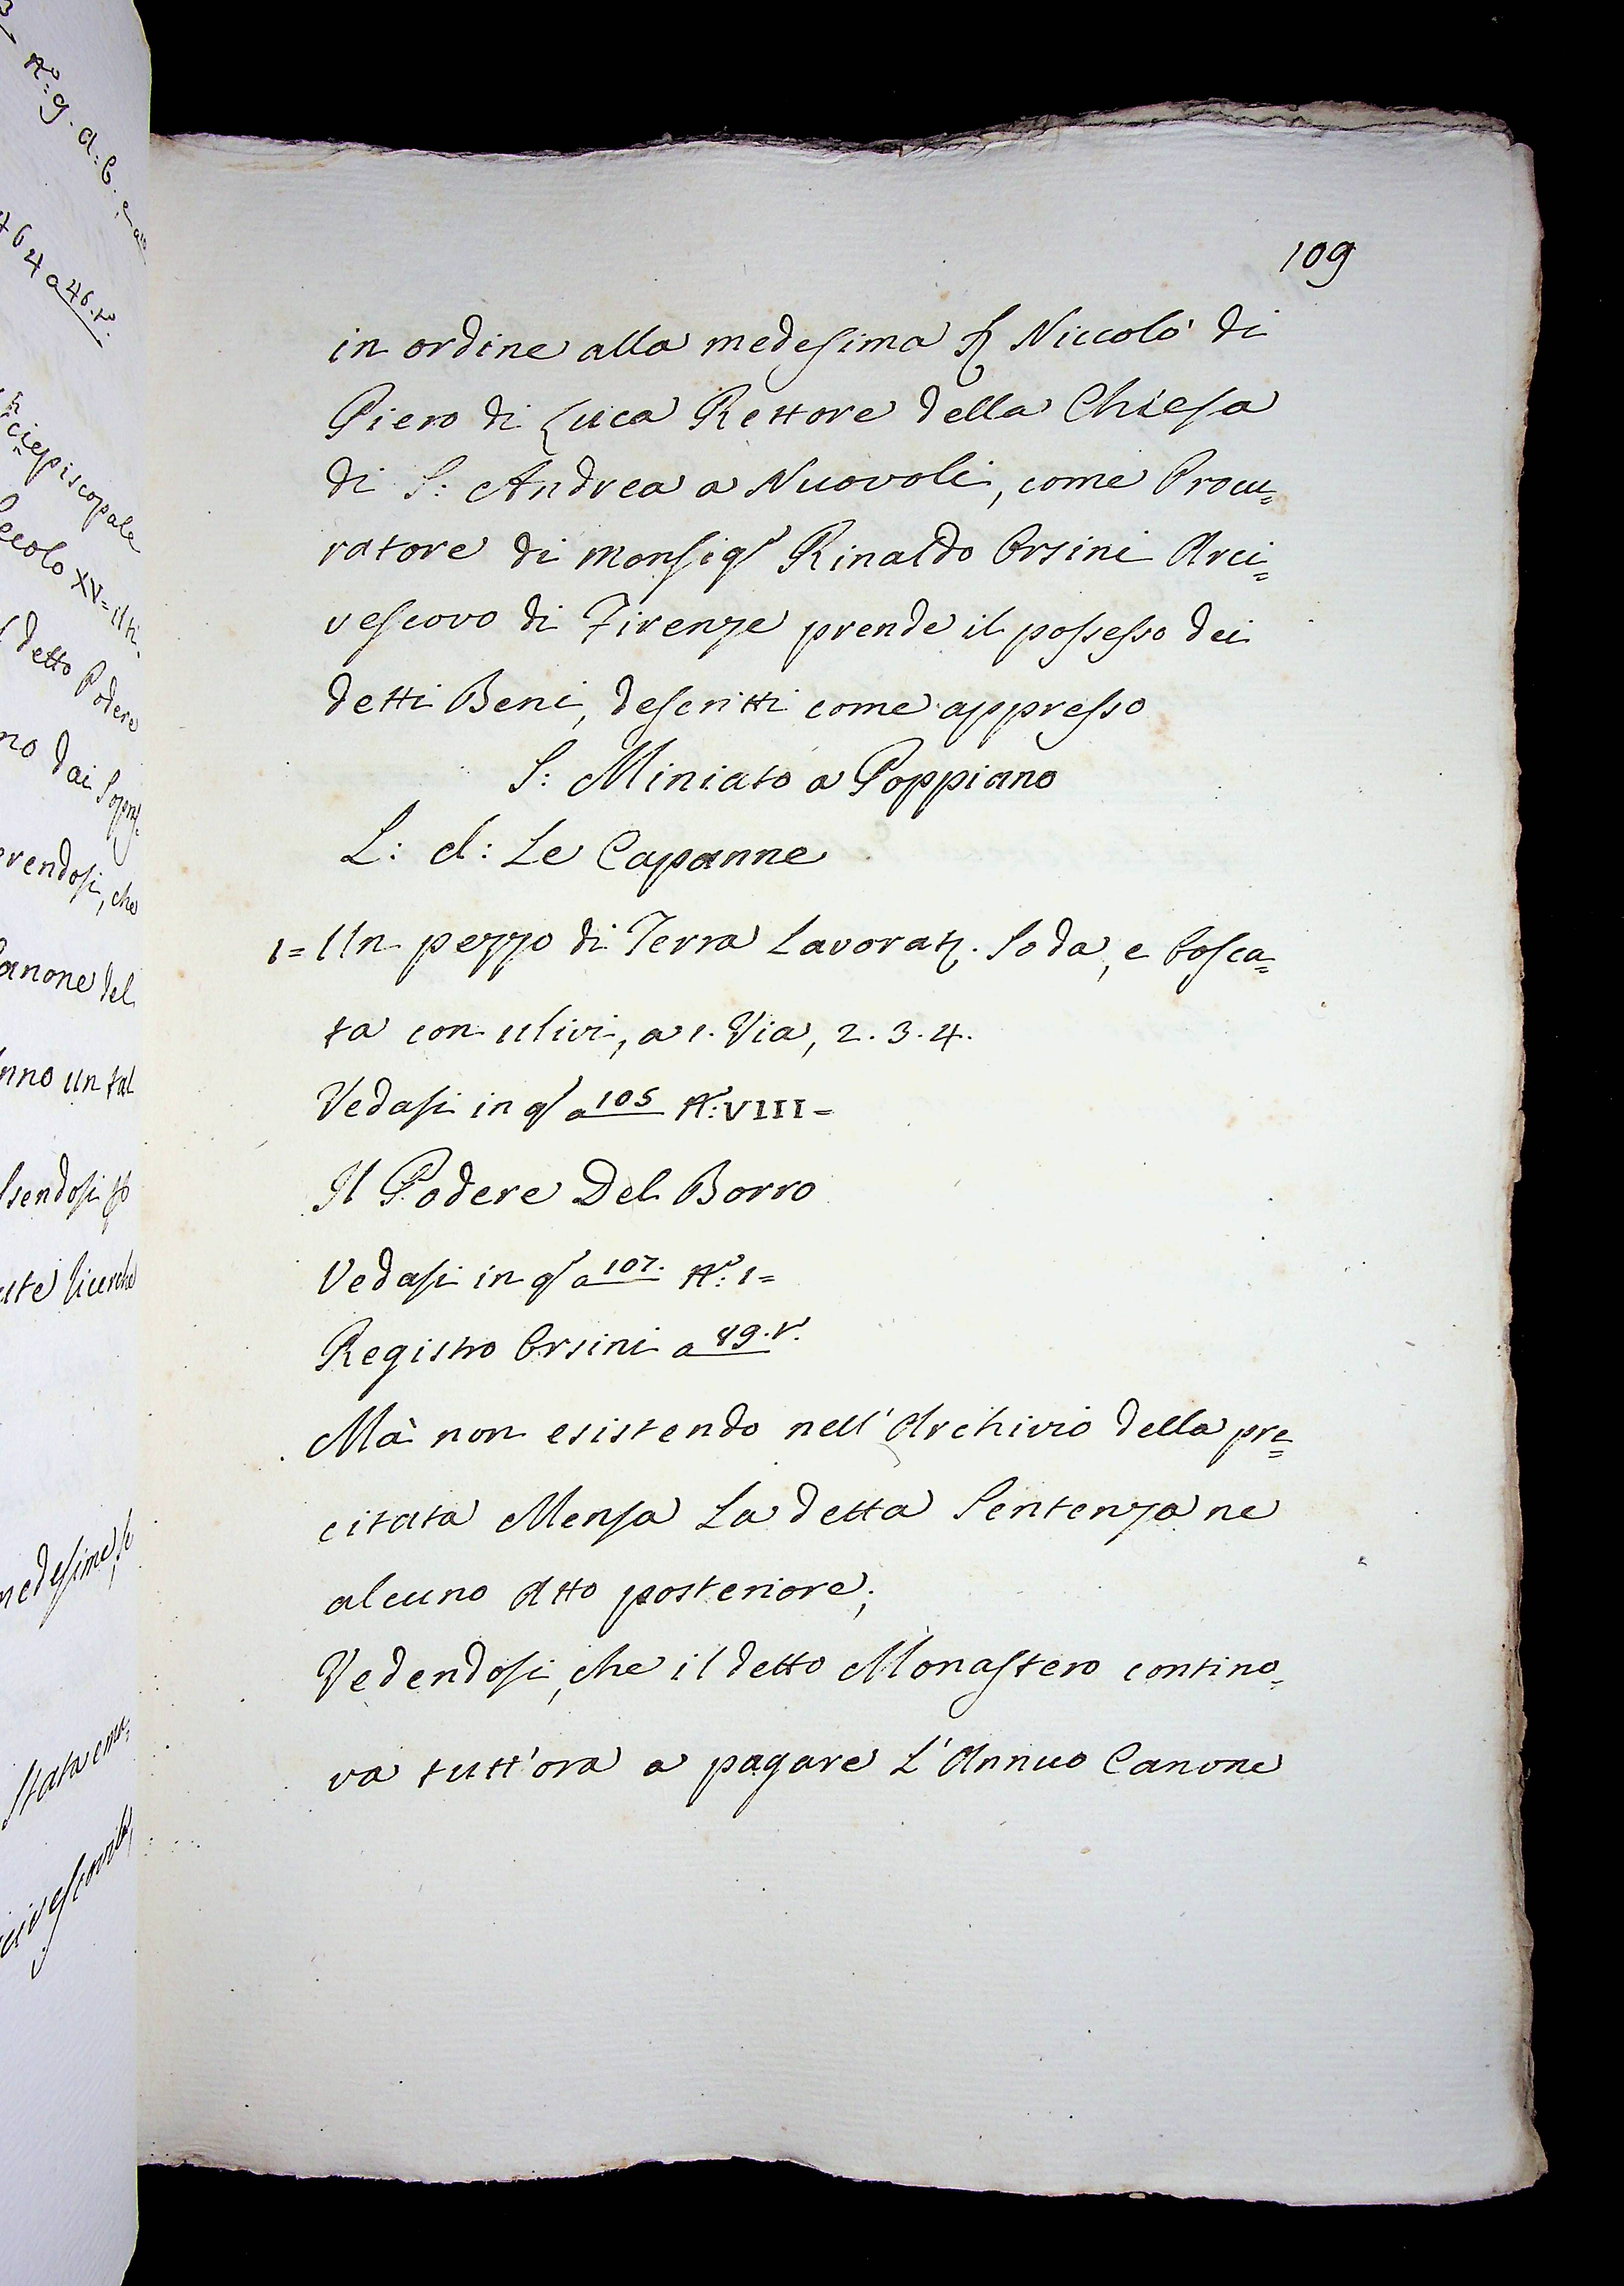 109
in ordine alla medesima Niccolò di
Piero di Luca Rettore della Chiesa
di S: Andrea a Nuovoli, come Procu=
ratore di Monsig.r Rinaldo Orsini Arci=
vescovo di Firenze prende il possesso dei
detti Beni, descritti come appresso
S: Miniato a Poppiano
L: d: Le Capanne
1= Un pezzo di Terra Lavorat. Soda, e bosca=
ta con ulivi, a 1. Via, 2. 3. 4.
Vedasi in q.o a 105 N.o: VIII=
Il Podere Del Borro
Vedasi in q.o a 107. N.o: 1=
Registro Orsini a 89. t.
Mà non esistendo nell'Archivio della pre=
citata Mensa La detta Sentenza ne
alcuno Atto posteriore;
Vedendosi, che il detto Monastero contino=
va tutt'ora a pagare L'Annuo Canone
N.o: 9. d: 6.
464 a 46. t:
ciepiscopale
ecolo XV= il
detto Podere
no dai
rendosi, che
anone del
nno un tal
sendosi
medesime, se
stata ema=